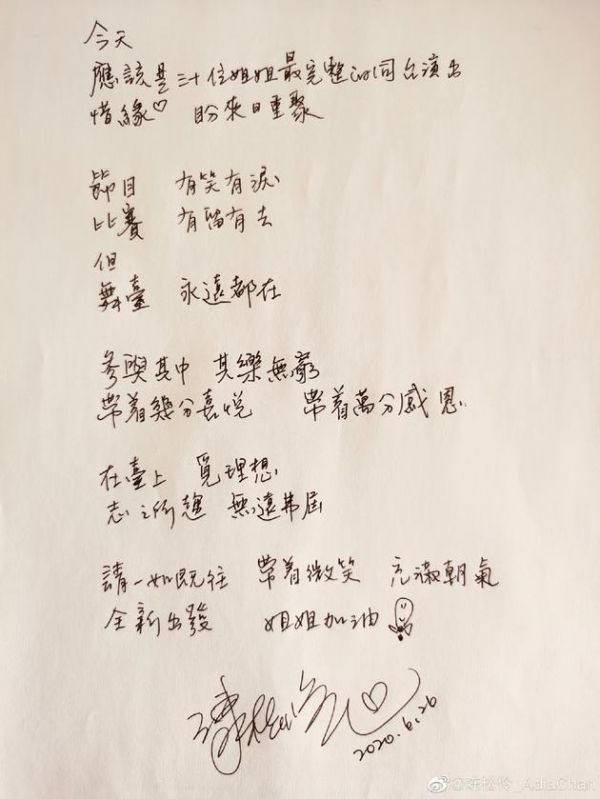 今天
應該是三十位姐姐最完整的同台演出
惜緣♡ 盼來日重聚
節目 有笑有淚
比賽 有留有去
但
舞臺 永遠都在
參與其中 其樂無窮
帶着幾分喜悅 帶着萬分感恩
在臺上 覓理想
志之所趨 無遠弗屆
請一如既往 帶着微笑 充滿朝氣
全新出發 姐姐加油
陳松伶
2020.6.26
@陳松伶_AdiaChan